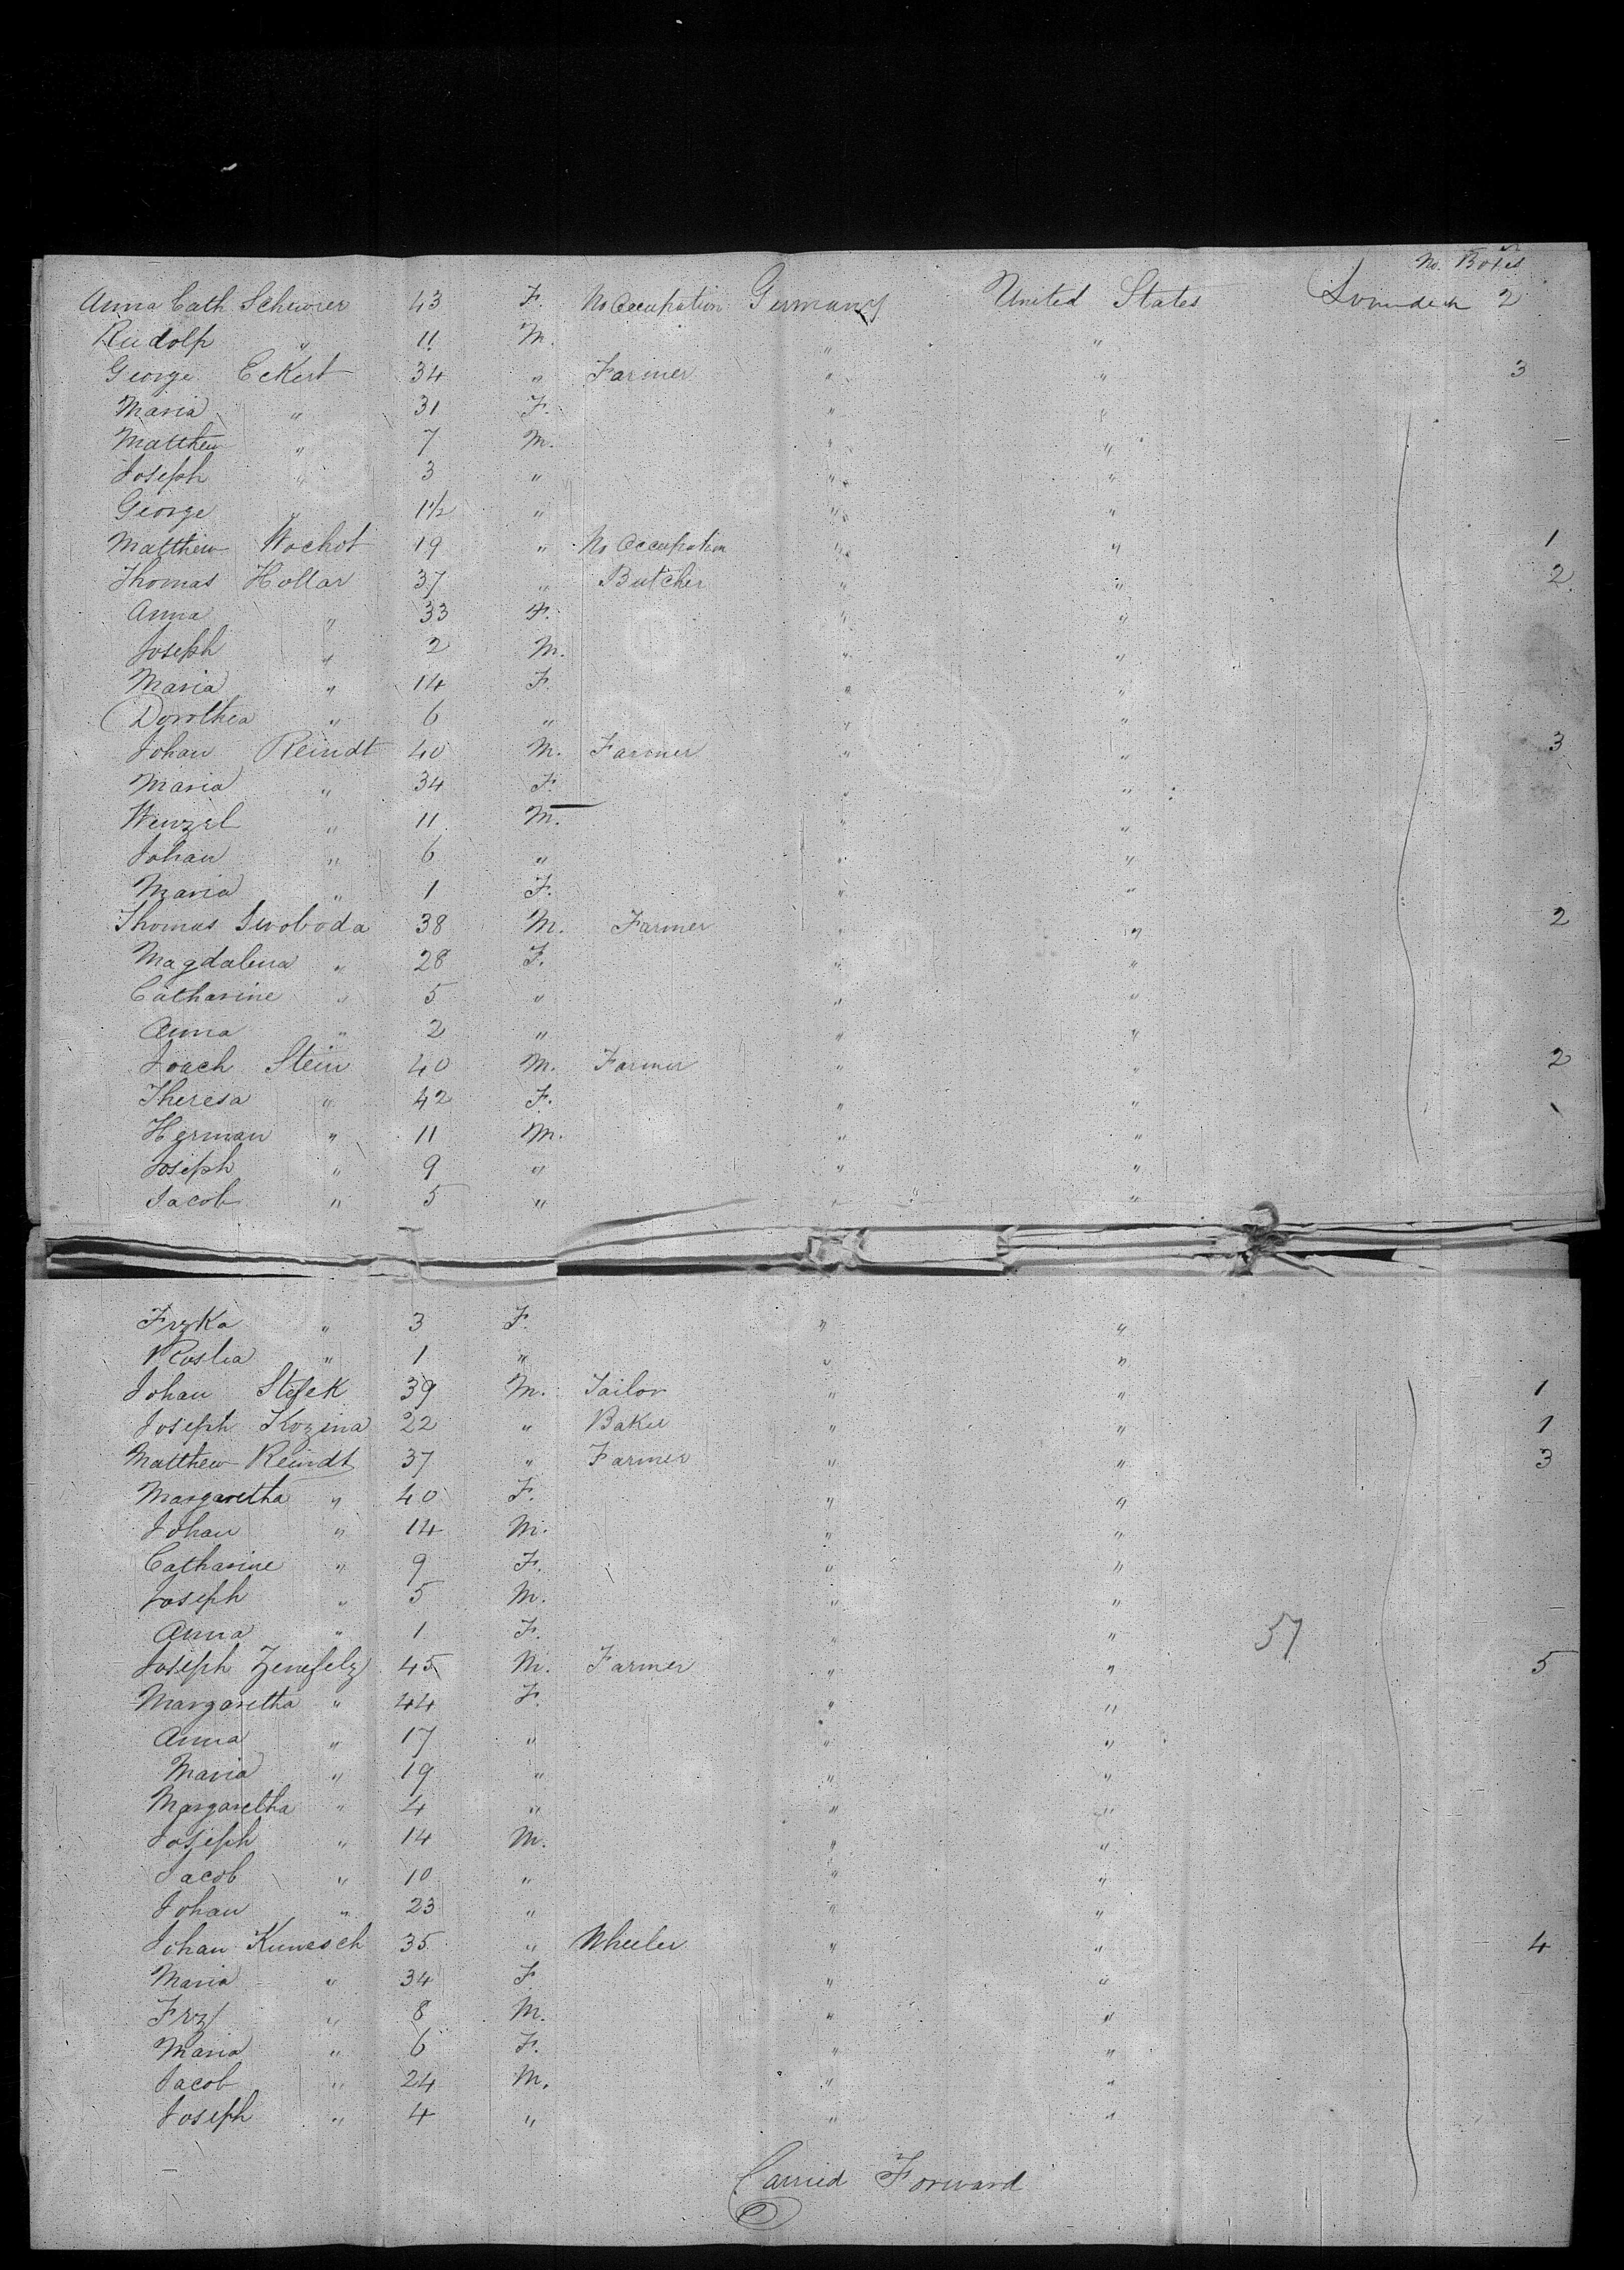 No. Boxes
Anna Cath Scheurer 43 F. No Occupation Germany United States 2
Rudolp " 11 M. " "
George Eckert 34 " Farmer " " 3
Maria " 31 F. " "
Matthew " 7 M. " "
Joseph " 3 " " "
George " 1½ " " "
Matthew Wochot 19 " No Occupation " " 1
Thomas Hollar 37 " Butcher " " 2
Anna " 33 F. " "
Joseph " 2 M. " "
Maria " 14 F. " "
Dorothea " 6 " " "
Johan Reindt 40 M. Farmer " " 3
Maria " 34 F. " "
Wenzel " 11 M. " "
Johan " 6 " " "
Maria " 1 F. " "
Thomas Swoboda 38 M. Farmer " " 2
Magdalena " 28 F. " "
Catharine " 5 " " "
Anna " 2 " " "
Joach Stein 40 M. Farmer " " 2
Theresa " 42 F. " "
Herman " 11 M. " "
Joseph " 9 " " "
Jacob " 5 " " "
Frzka " 3 F. " "
Roslia " 1 " " "
Johan 39 M. Tailor " " 1
Joseph Kozina 22 " Baker " " 1
Matthew Reindt 37 " Farmer " " 3
Margaretha " 40 F. " "
Johan " 14 M. " "
Catharine " 9 F. " "
Joseph " 5 M. " "
Anna " 1 F. " " 57
Joseph Zenefelz 45 M. Farmer " " 5
Margaretha " 44 F. " "
Anna " 17 " " "
Maria " 19 " " "
Margaretha " 4 " " "
Joseph " 14 M. " "
Jacob " 10 " " "
Johan " 23 " " "
Johan Kunesch 35 " Wheeler " " 4
Maria " 34 F " "
Frz " 8 M. " "
Maria " 6 F. " "
Jacob " 24 M. " "
Joseph " 4 " " "
Carried Forward